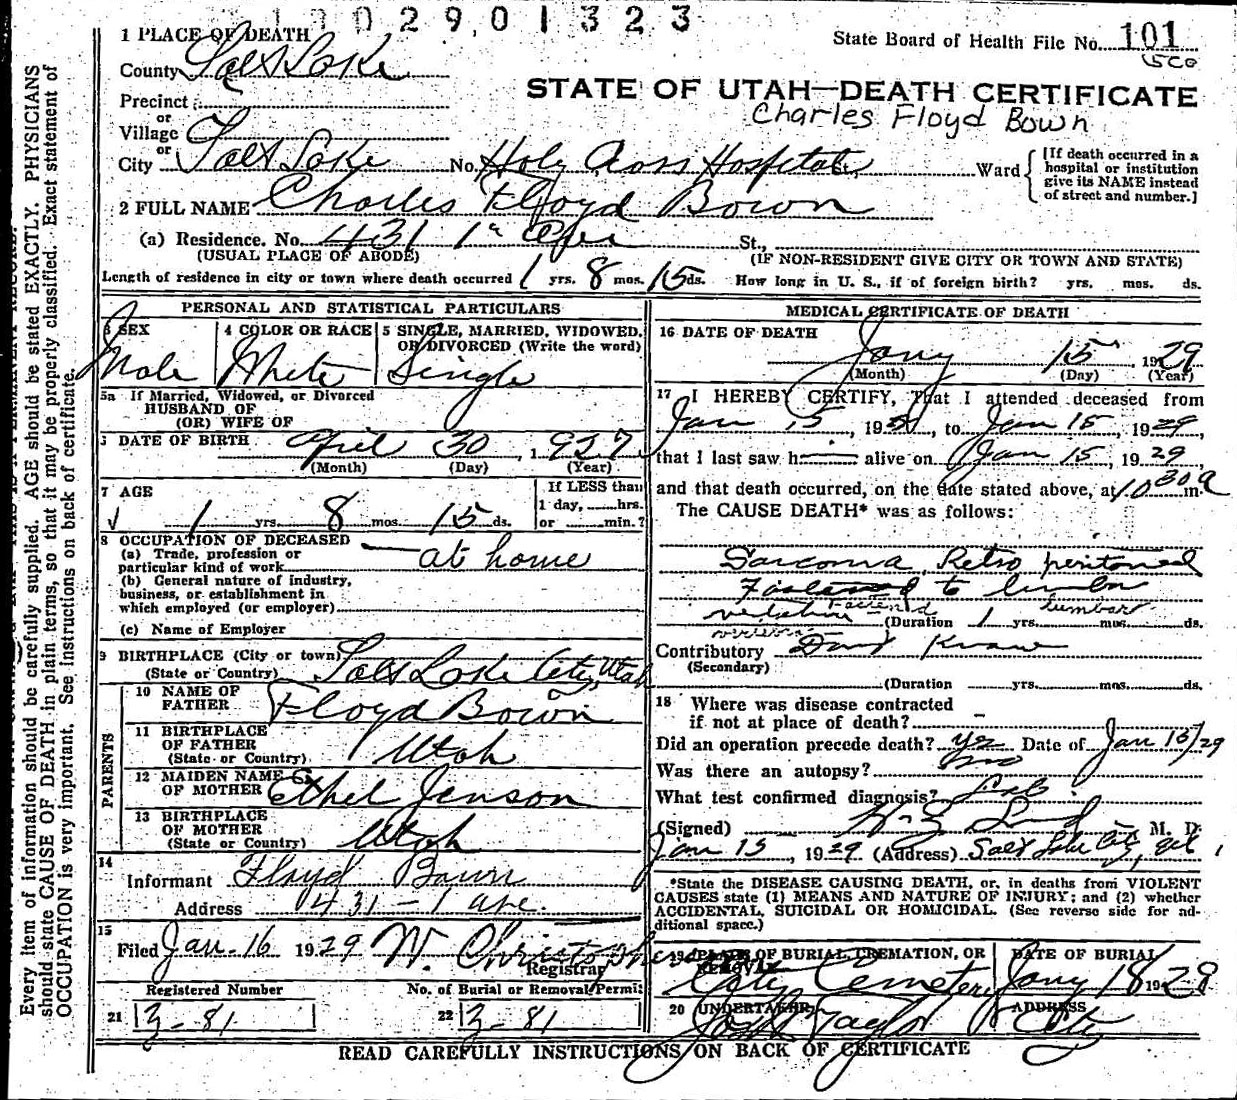 1002901323
1 PLACE OF DEATH
State Board of Health File No. 101
County Salt Lake
STATE OF UTAH—DEATH CERTIFICATE
Precinct
or
Charles Floyd Bown
Village
or
City Salt Lake No. Holy Cross Hospital Ward
[If death occurred in a hospital or institution give its NAME instead of street and number.]
2 FULL NAME Charles Floyd Bown
(a) Residence. No. 431 1st Ave St.,
(USUAL PLACE OF ABODE) (IF NON-RESIDENT GIVE CITY OR TOWN AND STATE)
Length of residence in city or town where death occurred 1 yrs. 8 mos. 15 ds. How long in U. S., if of foreign birth? yrs. mos. ds.
PERSONAL AND STATISTICAL PARTICULARS
3 SEX
Male
4 COLOR OR RACE
White
5 SINGLE, MARRIED, WIDOWED,
OR DIVORCED (Write the word)
Single
5a If Married, Widowed, or Divorced
HUSBAND OF
(OR) WIFE OF
6 DATE OF BIRTH April 30, 1927
(Month) (Day) (Year)
7 AGE
1 yrs. 8 mos. 15 ds.
If LESS than
1 day, hrs.
or min.?
8 OCCUPATION OF DECEASED
(a) Trade, profession or
particular kind of work at home
(b) General nature of industry,
business, or establishment in
which employed (or employer)
(c) Name of Employer
9 BIRTHPLACE (City or town) Salt Lake City, Utah
(State or Country)
PARENTS
10 NAME OF
FATHER Floyd Bown
11 BIRTHPLACE
OF FATHER Utah
(State or Country)
12 MAIDEN NAME
OF MOTHER Ethel Jenson
13 BIRTHPLACE
OF MOTHER Utah
(State or Country)
14
Informant Floyd Bown
Address 431 - 1 ave.
15
Filed Jan. 16 1929 W. Christopherson
Registrar
Registered Number No. of Burial or Removal Permit
21 Z-81 22 Z-81
MEDICAL CERTIFICATE OF DEATH
16 DATE OF DEATH
Jany 15, 1929
(Month) (Day) (Year)
17 I HEREBY CERTIFY, That I attended deceased from
Jan 15, 1929, to Jan 15, 1929,
that I last saw h alive on Jan 15, 1929,
and that death occurred, on the date stated above, at 10 30 a m.
The CAUSE DEATH* was as follows:
Sarcoma, Retro peritoneal
to
lumbar
(Duration 1 yrs. mos. ds.
Contributory Don't Know
(Secondary)
(Duration yrs. mos. ds.
18 Where was disease contracted
if not at place of death? -
Did an operation precede death? yes Date of Jan 15/29
Was there an autopsy? no
What test confirmed diagnosis? Lab
(Signed) M. D.
Jan 15, 1929 (Address) Salt Lake City, Ut
*State the DISEASE CAUSING DEATH, or, in deaths from VIOLENT
CAUSES state (1) MEANS AND NATURE OF INJURY; and (2) whether
ACCIDENTAL, SUICIDAL OR HOMICIDAL. (See reverse side for ad-
ditional space.)
19 PLACE OF BURIAL, CREMATION, OR
REMOVAL
City Cemetery
DATE OF BURIAL
Jany 18 1929
20 UNDERTAKER
Taylor
ADDRESS
City
READ CAREFULLY INSTRUCTIONS ON BACK OF CERTIFICATE
Every item of information should be carefully supplied. AGE should be stated EXACTLY. PHYSICIANS
should state CAUSE OF DEATH in plain terms, so that it may be properly classified. Exact statement of
OCCUPATION is very important. See instructions on back of certificate.